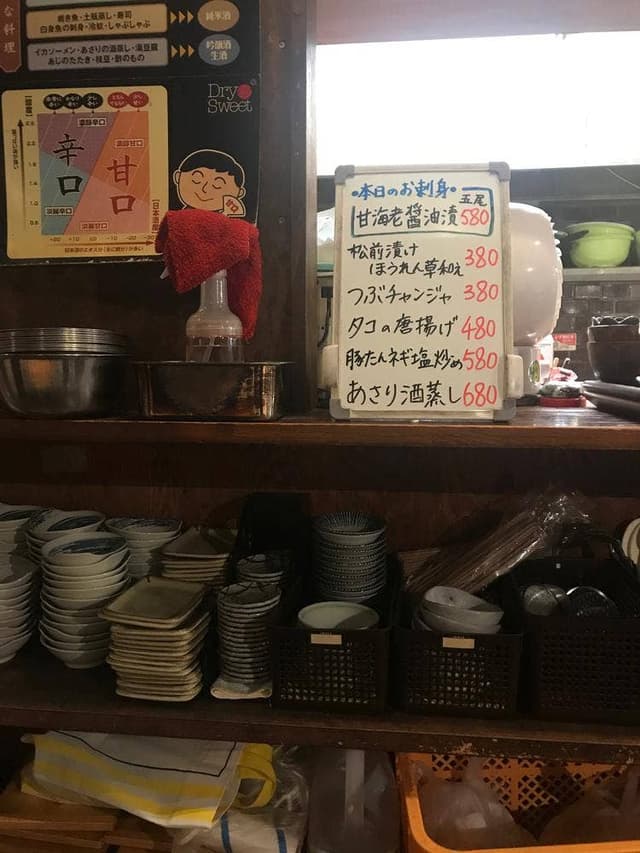 な料理
焼き魚・土瓶蒸し・寿司
白身魚の刺身・冷奴・しゃぶしゃぶ
純米酒
イカソーメン・あさりの酒蒸し・湯豆腐
あじのたたき・枝豆・酢のもの
吟醸酒
生酒
Dry
Sweet
濃醇辛口
濃醇甘口
辛口
甘口
淡麗辛口
淡麗甘口
•本日のお刺身•
甘海老醤油漬 五尾 580
松前漬け
ほうれん草和え 380
つぶチャンジャ 380
タコの唐揚げ 480
豚たんネギ塩炒め 580
あさり酒蒸し 680